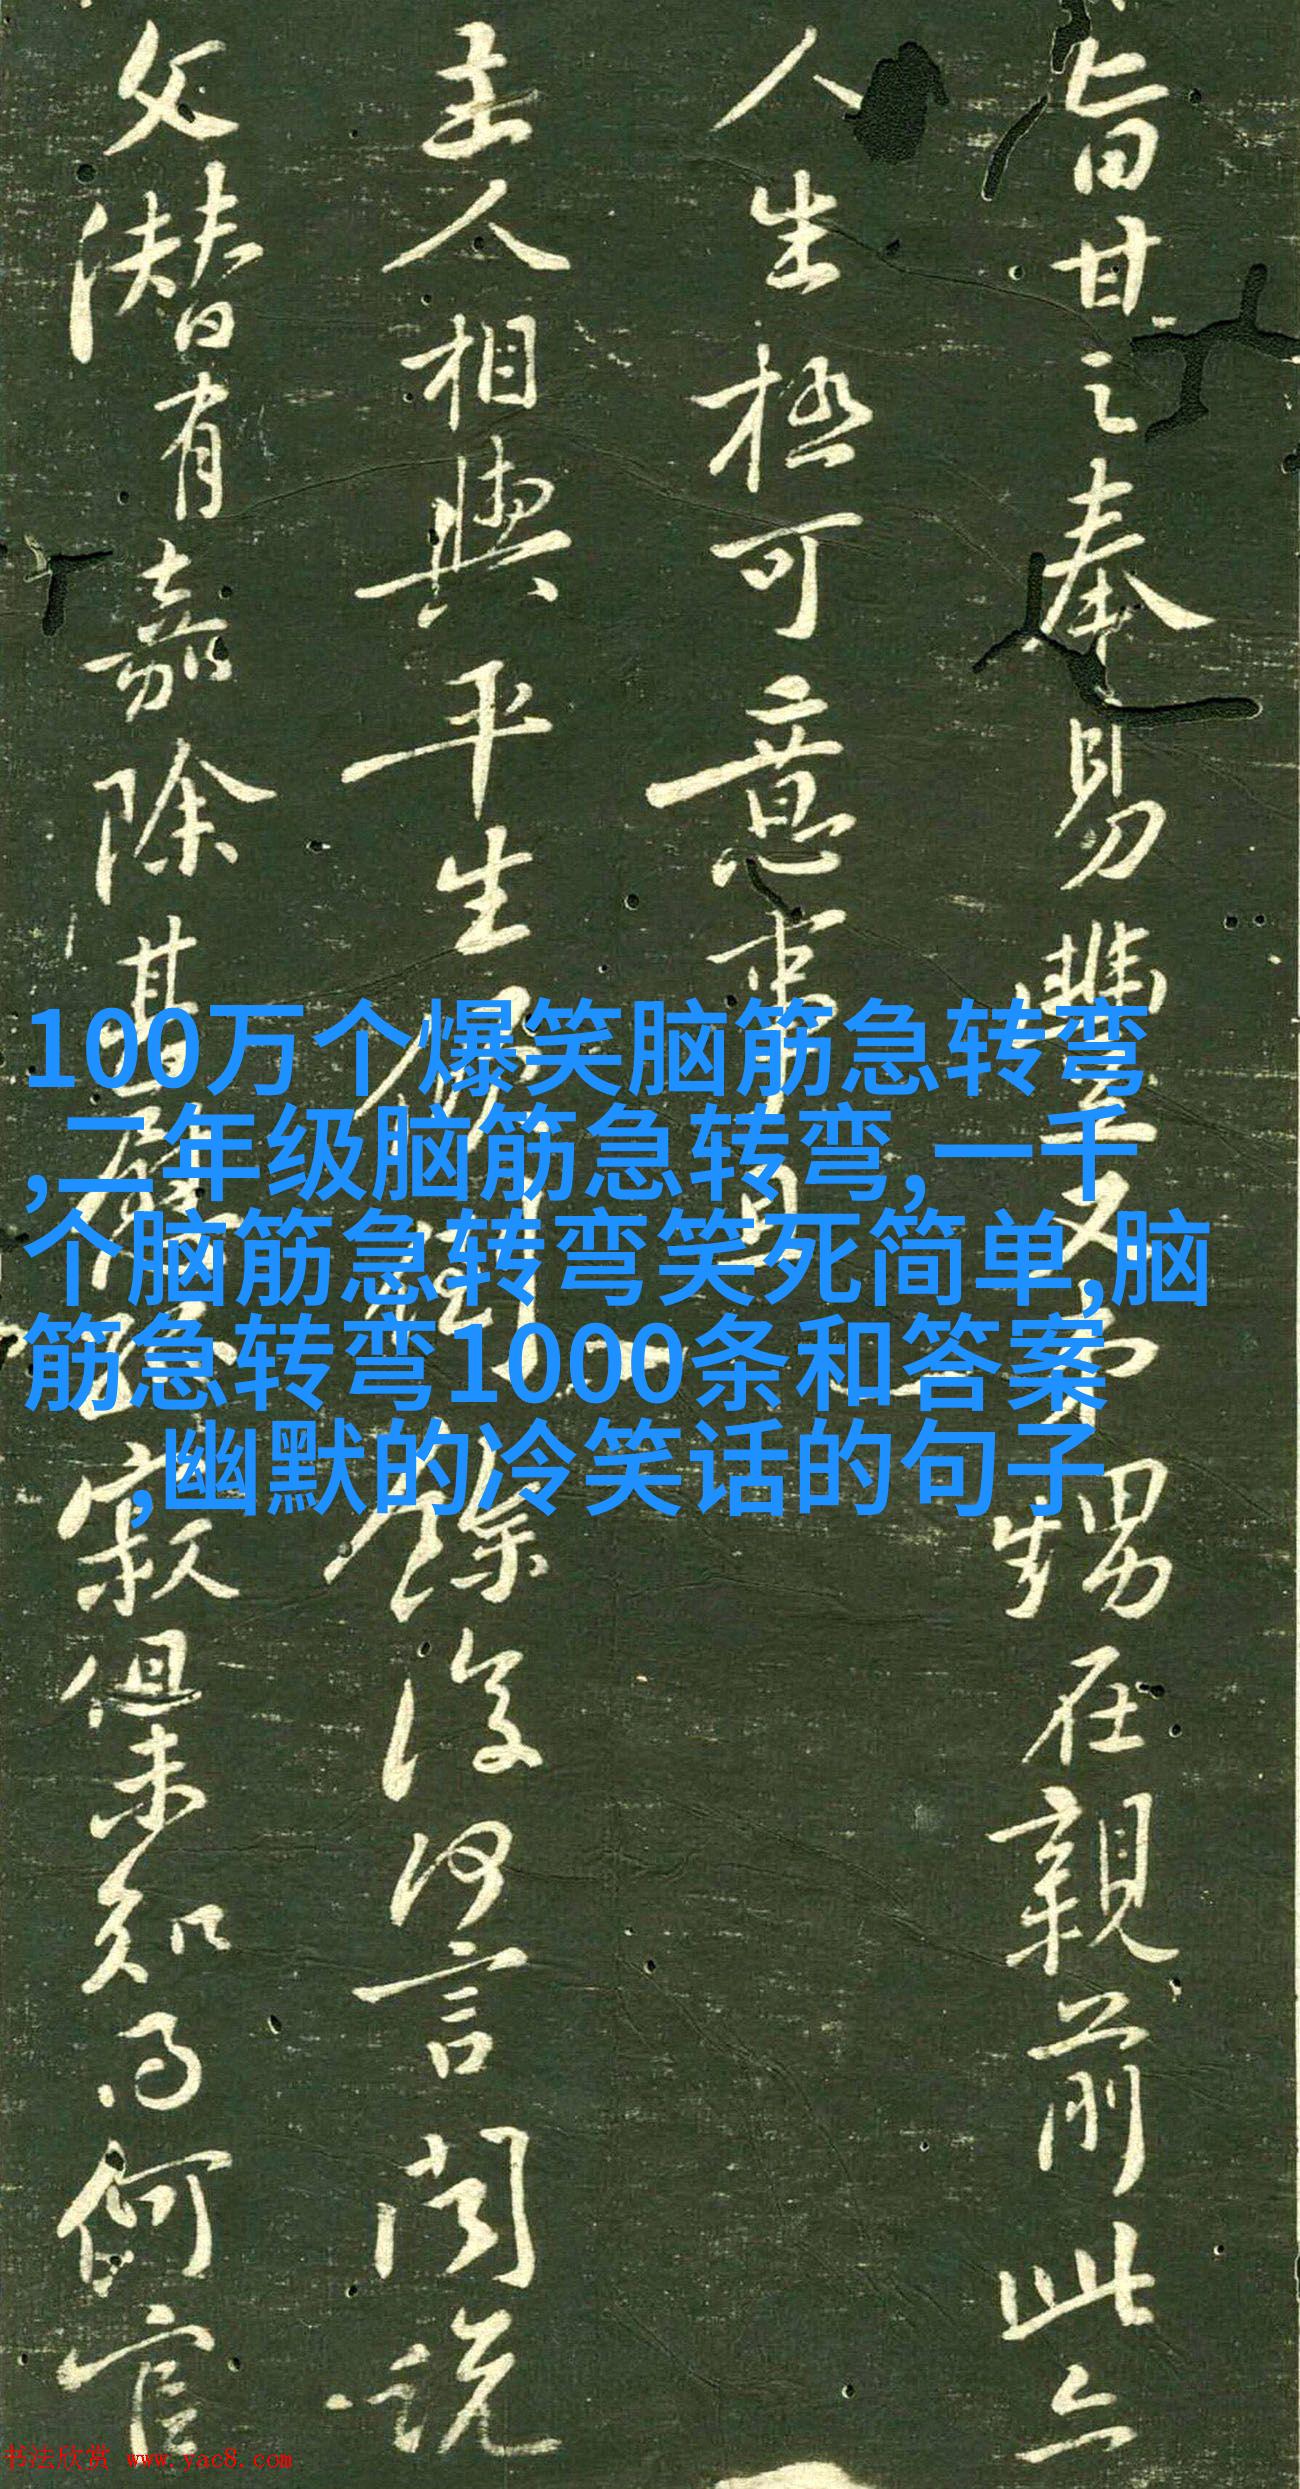 旨甘之奉易豐又弟甥在親前此亦
人生極可意事
主人相與平生餘復何言聞説
父潛有嘉除甚寂但未知得何官
100万个爆笑脑筋急转弯
,二年级脑筋急转弯,一千
个脑筋急转弯笑死简单,脑
筋急转弯1000条和答案
,幽默的冷笑话的句子
书法欣赏 www.yac8.com